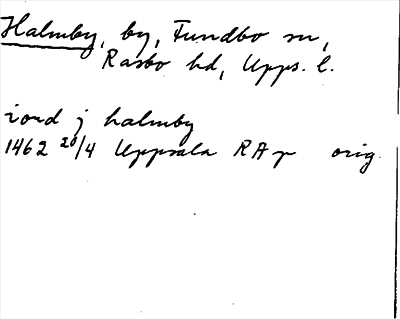 Halmby, by, Fundbo sn,
Rasbo hd, Upps. l.
iord j halmby
1462 20/4 Uppsala RAp orig.